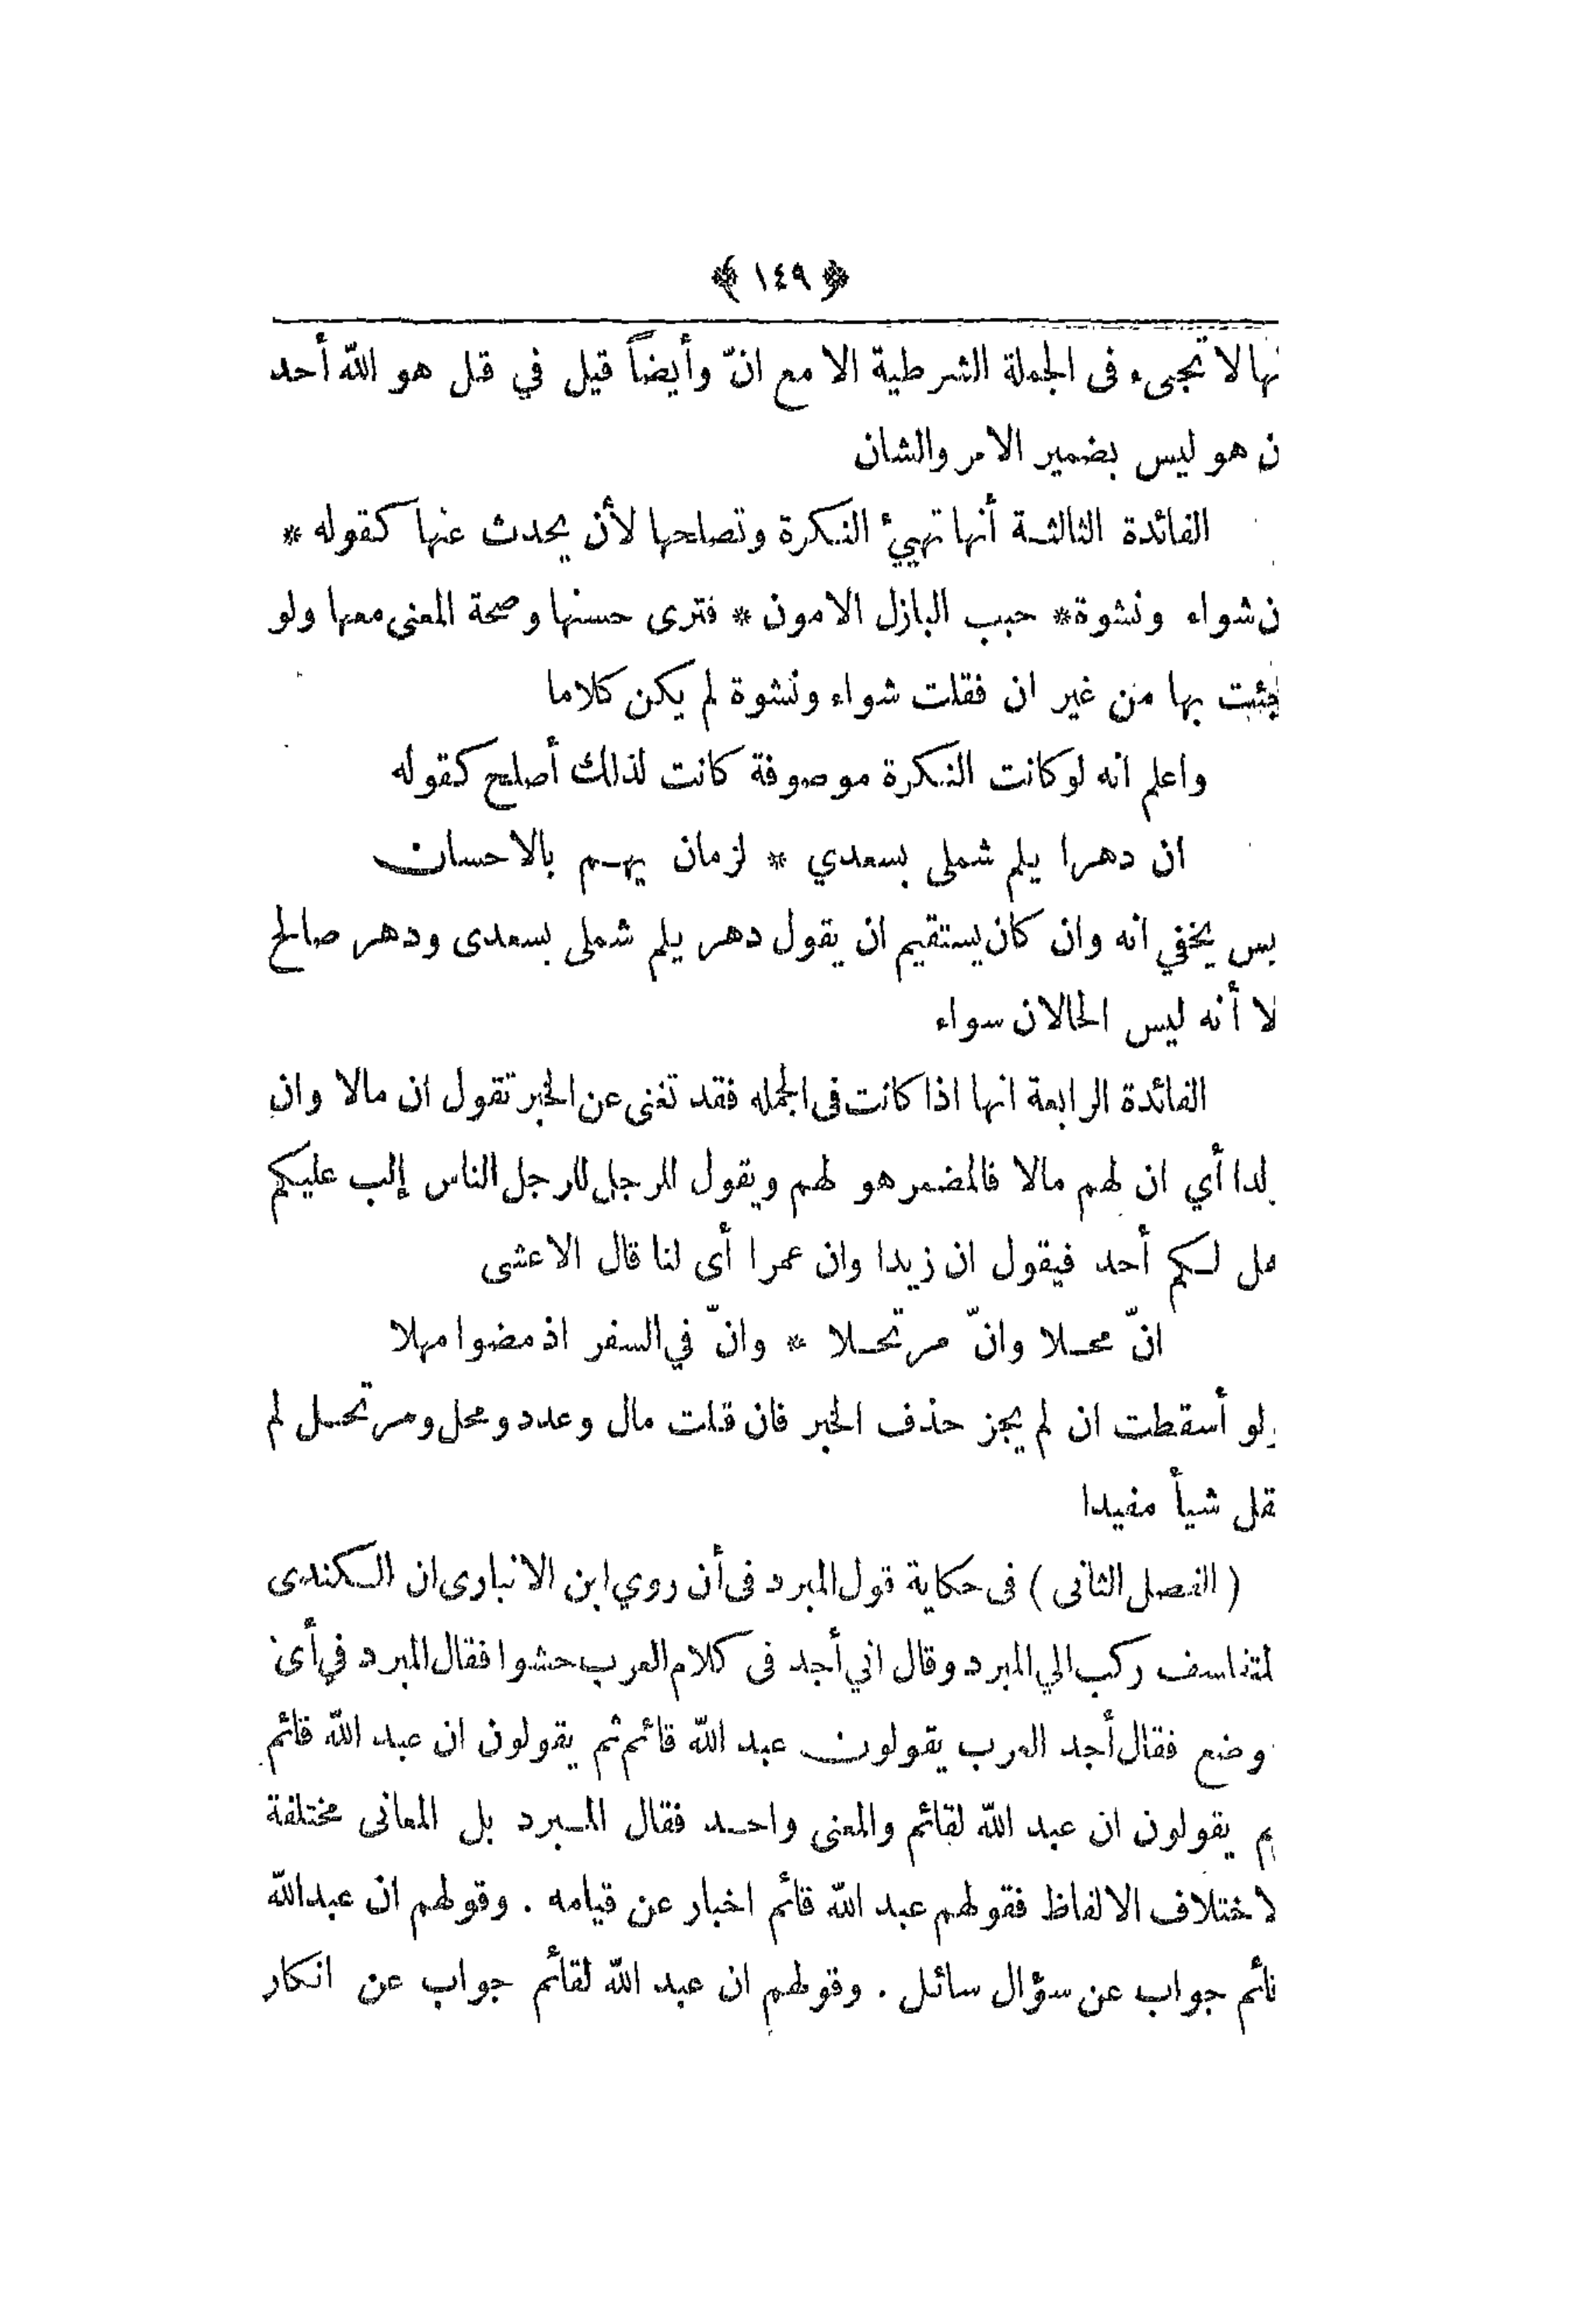 ﴿ ١٤٩ ﴾
نها لا تجىء فى الجملة الشرطية الا مع انّ وأيضاً قيل في قل هو الله أحد
ن هو ليس بضمير الامر والشان
الفائدة الثالثة أنها تهيئ النكرة وتصلحها لأن يحدث عنها كقوله *
ن شواء ونشوة * حبب البازل الامون * فترى حسنها وصحة المعنى معها ولو
جئت بها من غير ان فقلت شواء ونشوة لم يكن كلاما
واعلم انه لو كانت النكرة موصوفة كانت لذلك أصلح كقوله
ان دهرا يلم شملى بسعدي * لزمان يهم بالاحسان
يس يخفي انه وان كان يستقيم ان يقول دهر يلم شملى بسعدى ودهر صالح
لا أنه ليس الحالان سواء
الفائدة الرابعة انها اذا كانت فى الجمله فقد تغنى عن الخبر تقول ان مالا وان
لدا أي ان لهم مالا فالمضمر هو لهم ويقول الرجل للرجل الناس إلب عليكم
هل لكم أحد فيقول ان زيدا وان عمرا أى لنا قال الاعشى
انّ محلا وانّ مرتحلا * وانّ في السفر اذ مضوا مهلا
ولو أسقطت ان لم يجز حذف الخبر فان قلت مال وعدد ومحل ومرتحل لم
تقل شيأ مفيدا
( الفصل الثانى ) فى حكاية قول المبرد فى أن روي ابن الانبارى ان الكندى
لمتفاسف ركب الي المبرد وقال اني أجد فى كلام العرب حشوا فقال المبرد في أى
وضع فقال أجد العرب يقولون عبد الله قائم ثم يقولون ان عبد الله قائم
م يقولون ان عبد الله لقائم والمعنى واحد فقال المبرد بل المعانى مختلفة
لاختلاف الالفاظ فقولهم عبد الله قائم اخبار عن قيامه . وقولهم ان عبدالله
قائم جواب عن سؤال سائل . وقولهم ان عبد الله لقائم جواب عن انكار